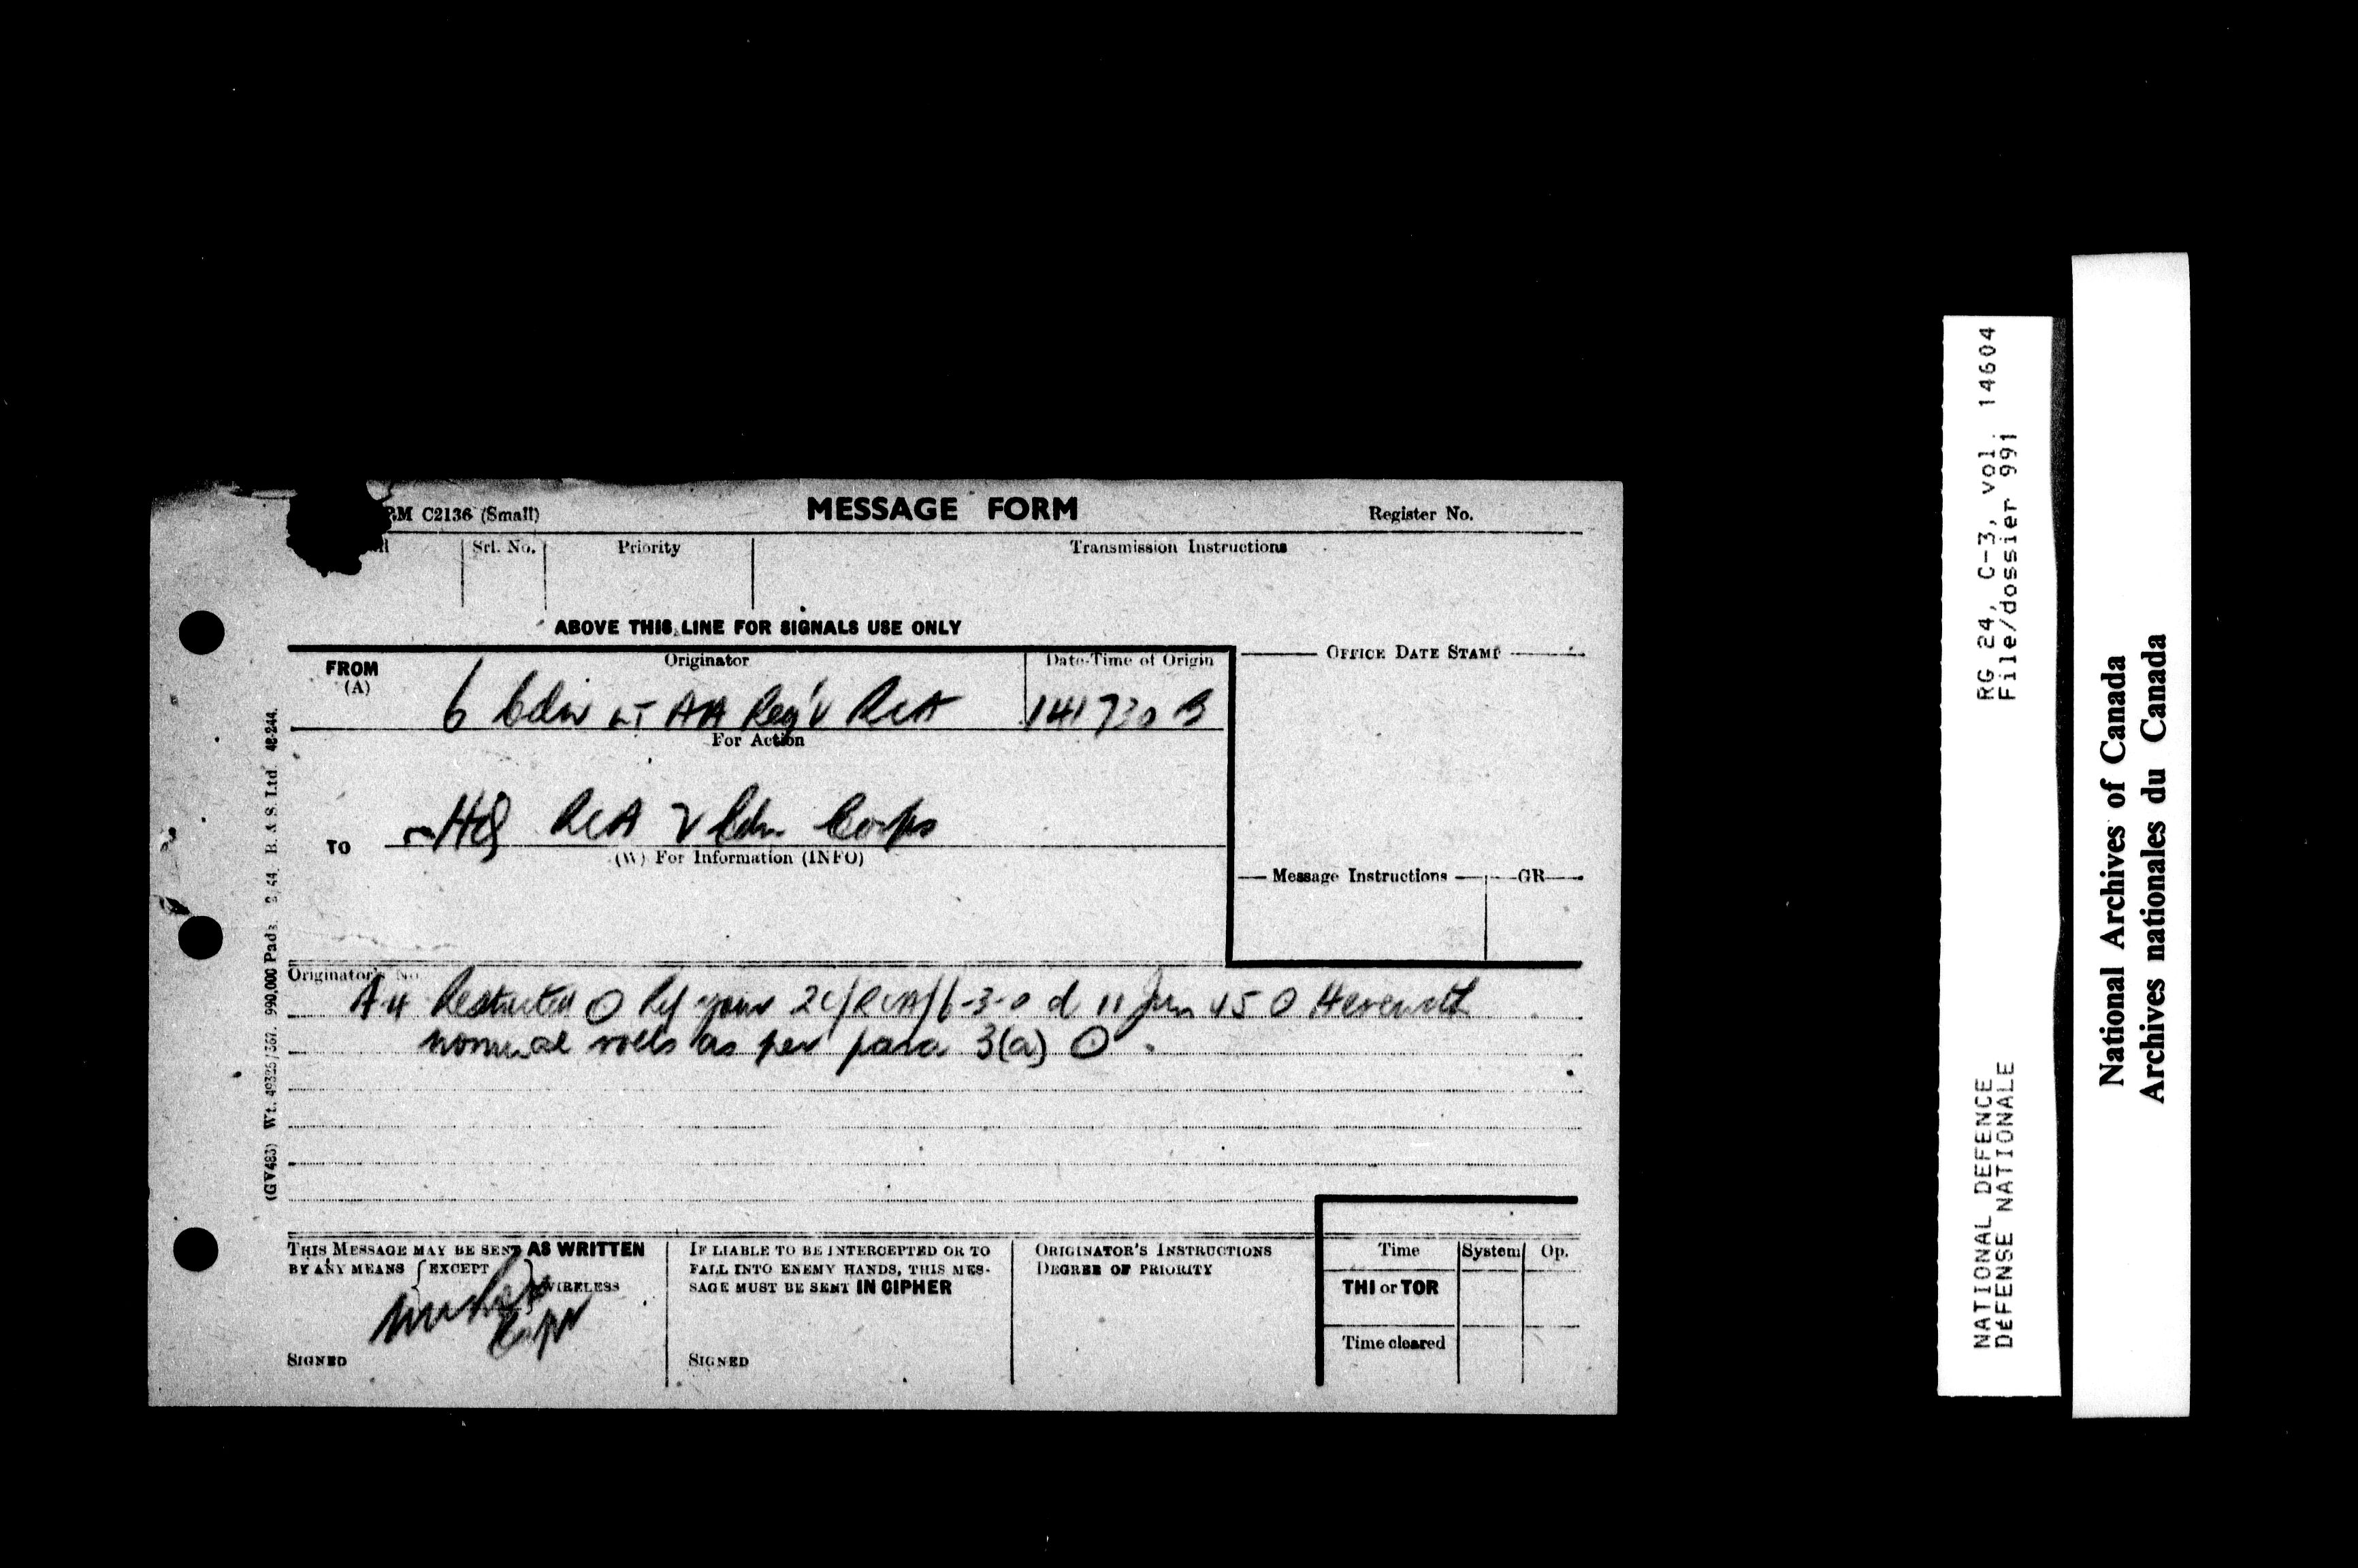 RM C2136 (Small)
MESSAGE FORM
Register No.
Srl. No.
Priority
Transmission Instructions
ABOVE THIS LINE FOR SIGNALS USE ONLY
FROM
(A)
Originator
Date-Time of Origin
OFFICE DATE STAMP
6 Cdn LT AA Reg't RCA
141730 B
For Action
TO
HQ RCA 2 Cdn Corps
(W) For Information (INFO)
Message Instructions
GR
Originator's No.
A4 Restricted O Ref your 2C/RCA/6-3-0 d 11 Jun 45 O Herewith
nominal rolls as per para 3(a) O
THIS MESSAGE MAY BE SENT AS WRITTEN
BY ANY MEANS EXCEPT
WIRELESS
Capt
SIGNED
IF LIABLE TO BE INTERCEPTED OR TO
FALL INTO ENEMY HANDS, THIS MES-
SAGE MUST BE SENT IN CIPHER
SIGNED
ORIGINATOR'S INSTRUCTIONS
DEGREE OF PRIORITY
Time
System
Op.
THI or TOR
Time cleared
(GV483) Wt. 49325/367. 990,000 Pads. 2/44. B. & S. Ltd.
RG 24, C-3, vol. 14604
File/dossier 991
NATIONAL DEFENCE
DÉFENSE NATIONALE
National Archives of Canada
Archives nationales du Canada